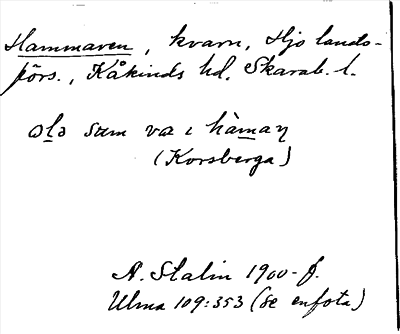 Hammaren, kvarn, Hjo lands-
förs., Kåkinds hd, Skarab. l.
ələ sɑm va ı hàmaɳ
(Korsberga)
A. Stalin 1900-f.
Ulma 109:353 (se enfota)